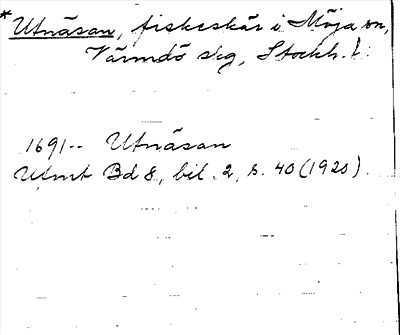 *Utnäsan, fiskeskär i Möja sn,
Värmdö skg, Stockh. l.
1691-- Utnäsan
Utmt Bd 8, bil. 2, s. 40 (1920).